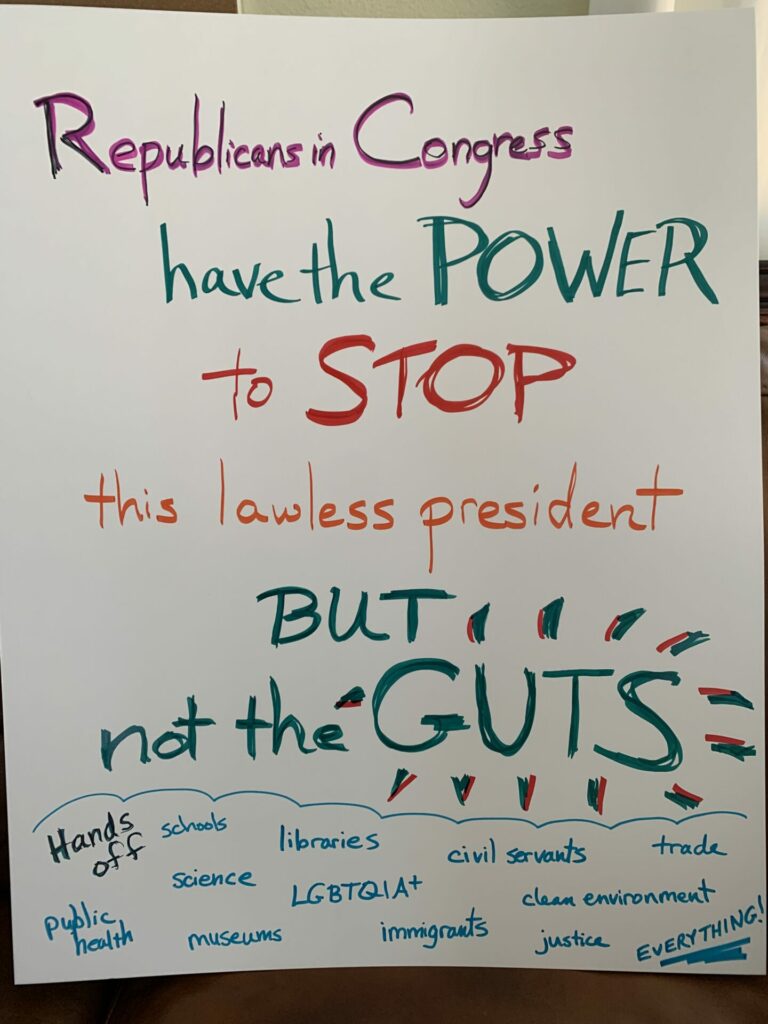 Republicans in Congress
have the POWER
to STOP
this lawless president
BUT
not the GUTS
Hands off
schools
libraries
civil servants
trade
science
LGBTQIA+
clean environment
public health
museums
immigrants
justice
EVERYTHING!